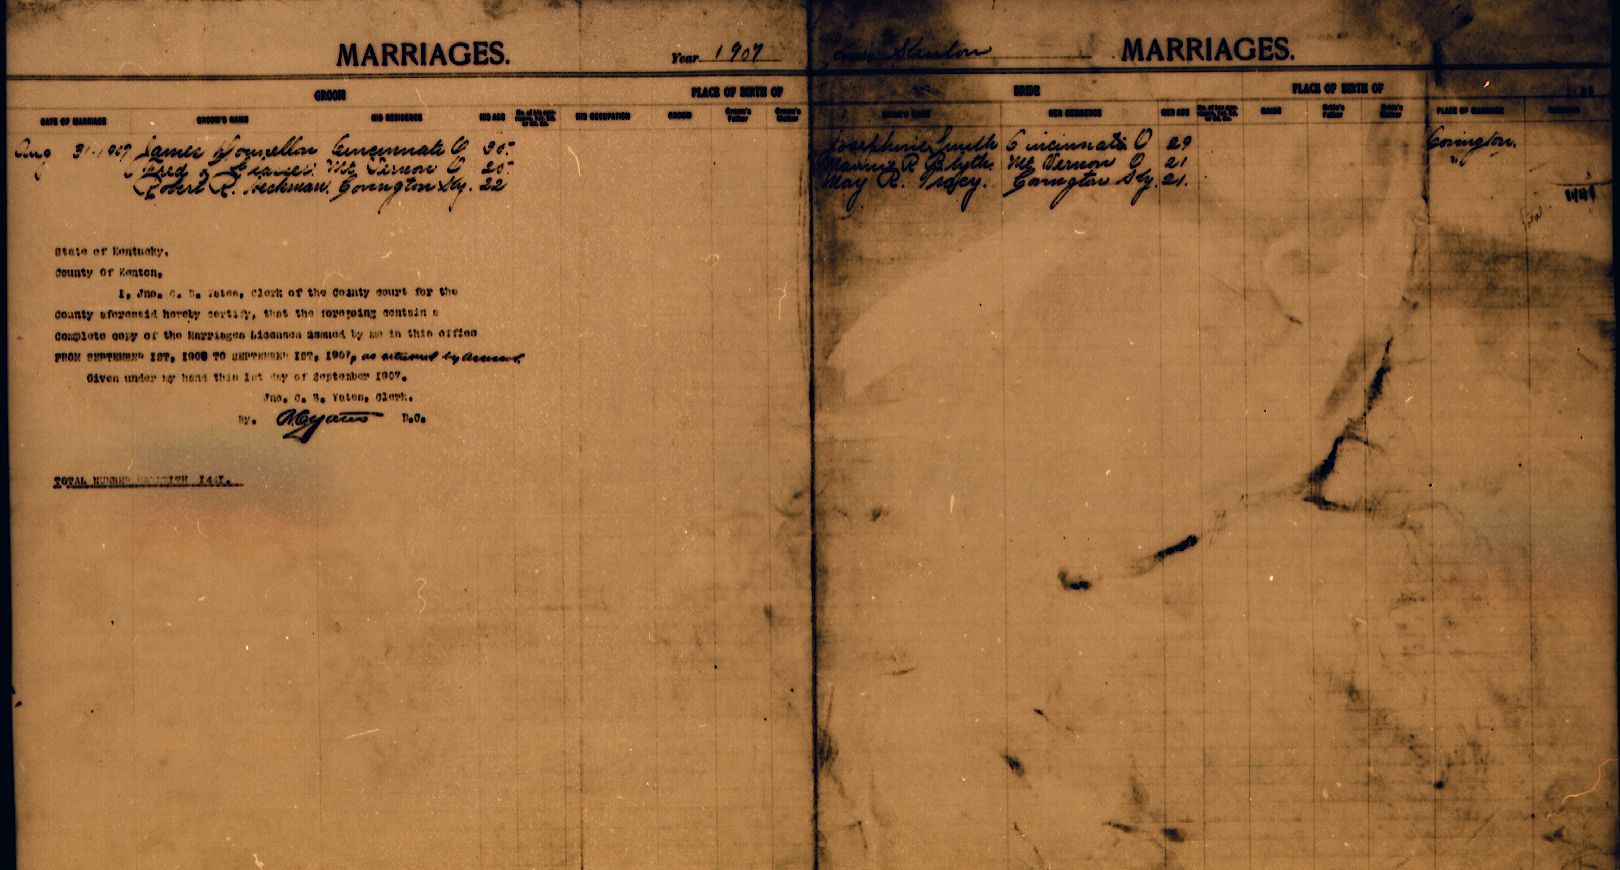 MARRIAGES.
Year 1907
GROOM
PLACE OF BIRTH OF
DATE OF MARRIAGE GROOM'S NAME HIS RESIDENCE HIS AGE HIS OCCUPATION GROOM Groom's Father Groom's Mother
Aug 31-1907 James Cincinnati O 30
Fred Mt Vernon O
Robert R. Covington Ky. 22
State of Kentucky,
County Of Kenton,
I, Jno. C. B. Yates, Clerk of the County court for the
County aforesaid hereby certify, that the foregoing contain a
Complete copy of the Marriages Licenses issued by me in this office
FROM SEPTEMBER 1ST, TO SEPTEMBER 1ST, 1907, as returned by Assessor.
Given under my hand this 1st day of September 1907.
Jno. C. B. Yates, Clerk.
By. D.C.
TOTAL NUMBER
County Kenton
MARRIAGES.
BRIDE
PLACE OF BIRTH OF
HER RESIDENCE HER AGE BRIDE Bride's Father Bride's Mother PLACE OF MARRIAGE REMARKS
Josephine Smith Cincinnati O 29 Covington.
R Blyth Mt Vernon O 21 "
May R. Tracy. Covington Ky. 21.